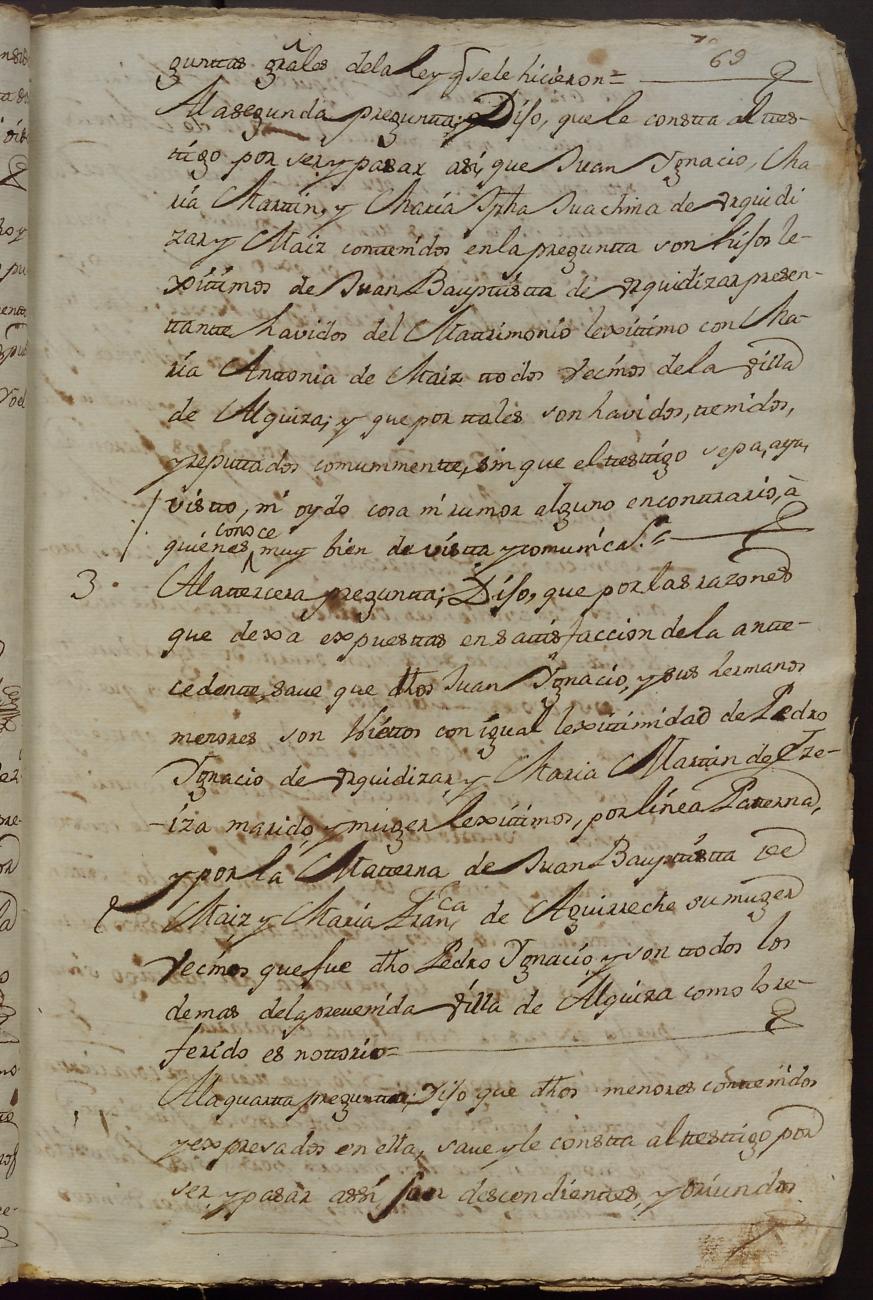 69
guntas grâles dela Ley q̃ sele hicieron=
Ala segunda pregunta; Dijo, que le consta al tes-
tigo por ser y pasar asi, que Juan Ygnacio, Ma
ria Martin, y Maria Jpha Juachina de Urquidi
zar y Maiz contenidos en la pregunta son hijos le-
xitimos de Juan Bauptista de Urquidizar presen-
tante havidos del Matrimonio lexitimo con Ma-
ria Antonia de Maiz todos Vecinos dela Villa
de Alquiza; y que por tales son havidos, tenidos,
y reputados comummente, sin que el testigo sepa, aya,
visto, ni oydo cosa ni rumor alguno en contrario, à
quienes conoce muy bien de vista y comunicas.n=
3. Ala tercera pregunta; Dijo, que por las razones
que dexa expuestas en satisfaccion dela ante-
cedente, save que dhos Juan Ygnacio, y sus hermanos
menores son Nietos con igual lexitimidad de Pedro
Ygnacio de Urquidizar, y Maria Martin de Yre-
iza marido, y muger lexitimos, por línea Paterna,
y por la Materna de Juan Bauptista de
Maiz y María Franca de Aguirreche su muger
Vecinos que fue dho Pedro Ygnacio, y son todos los
demas dela prevenida Villa de Alquiza como lo re-
ferido es notorio=
Ala quarta pregunta; Dijo que dhos menores contenidos
y expresados en ella, save y le consta al testigo por
ser, y pasar assi son descendientes, y oriundos